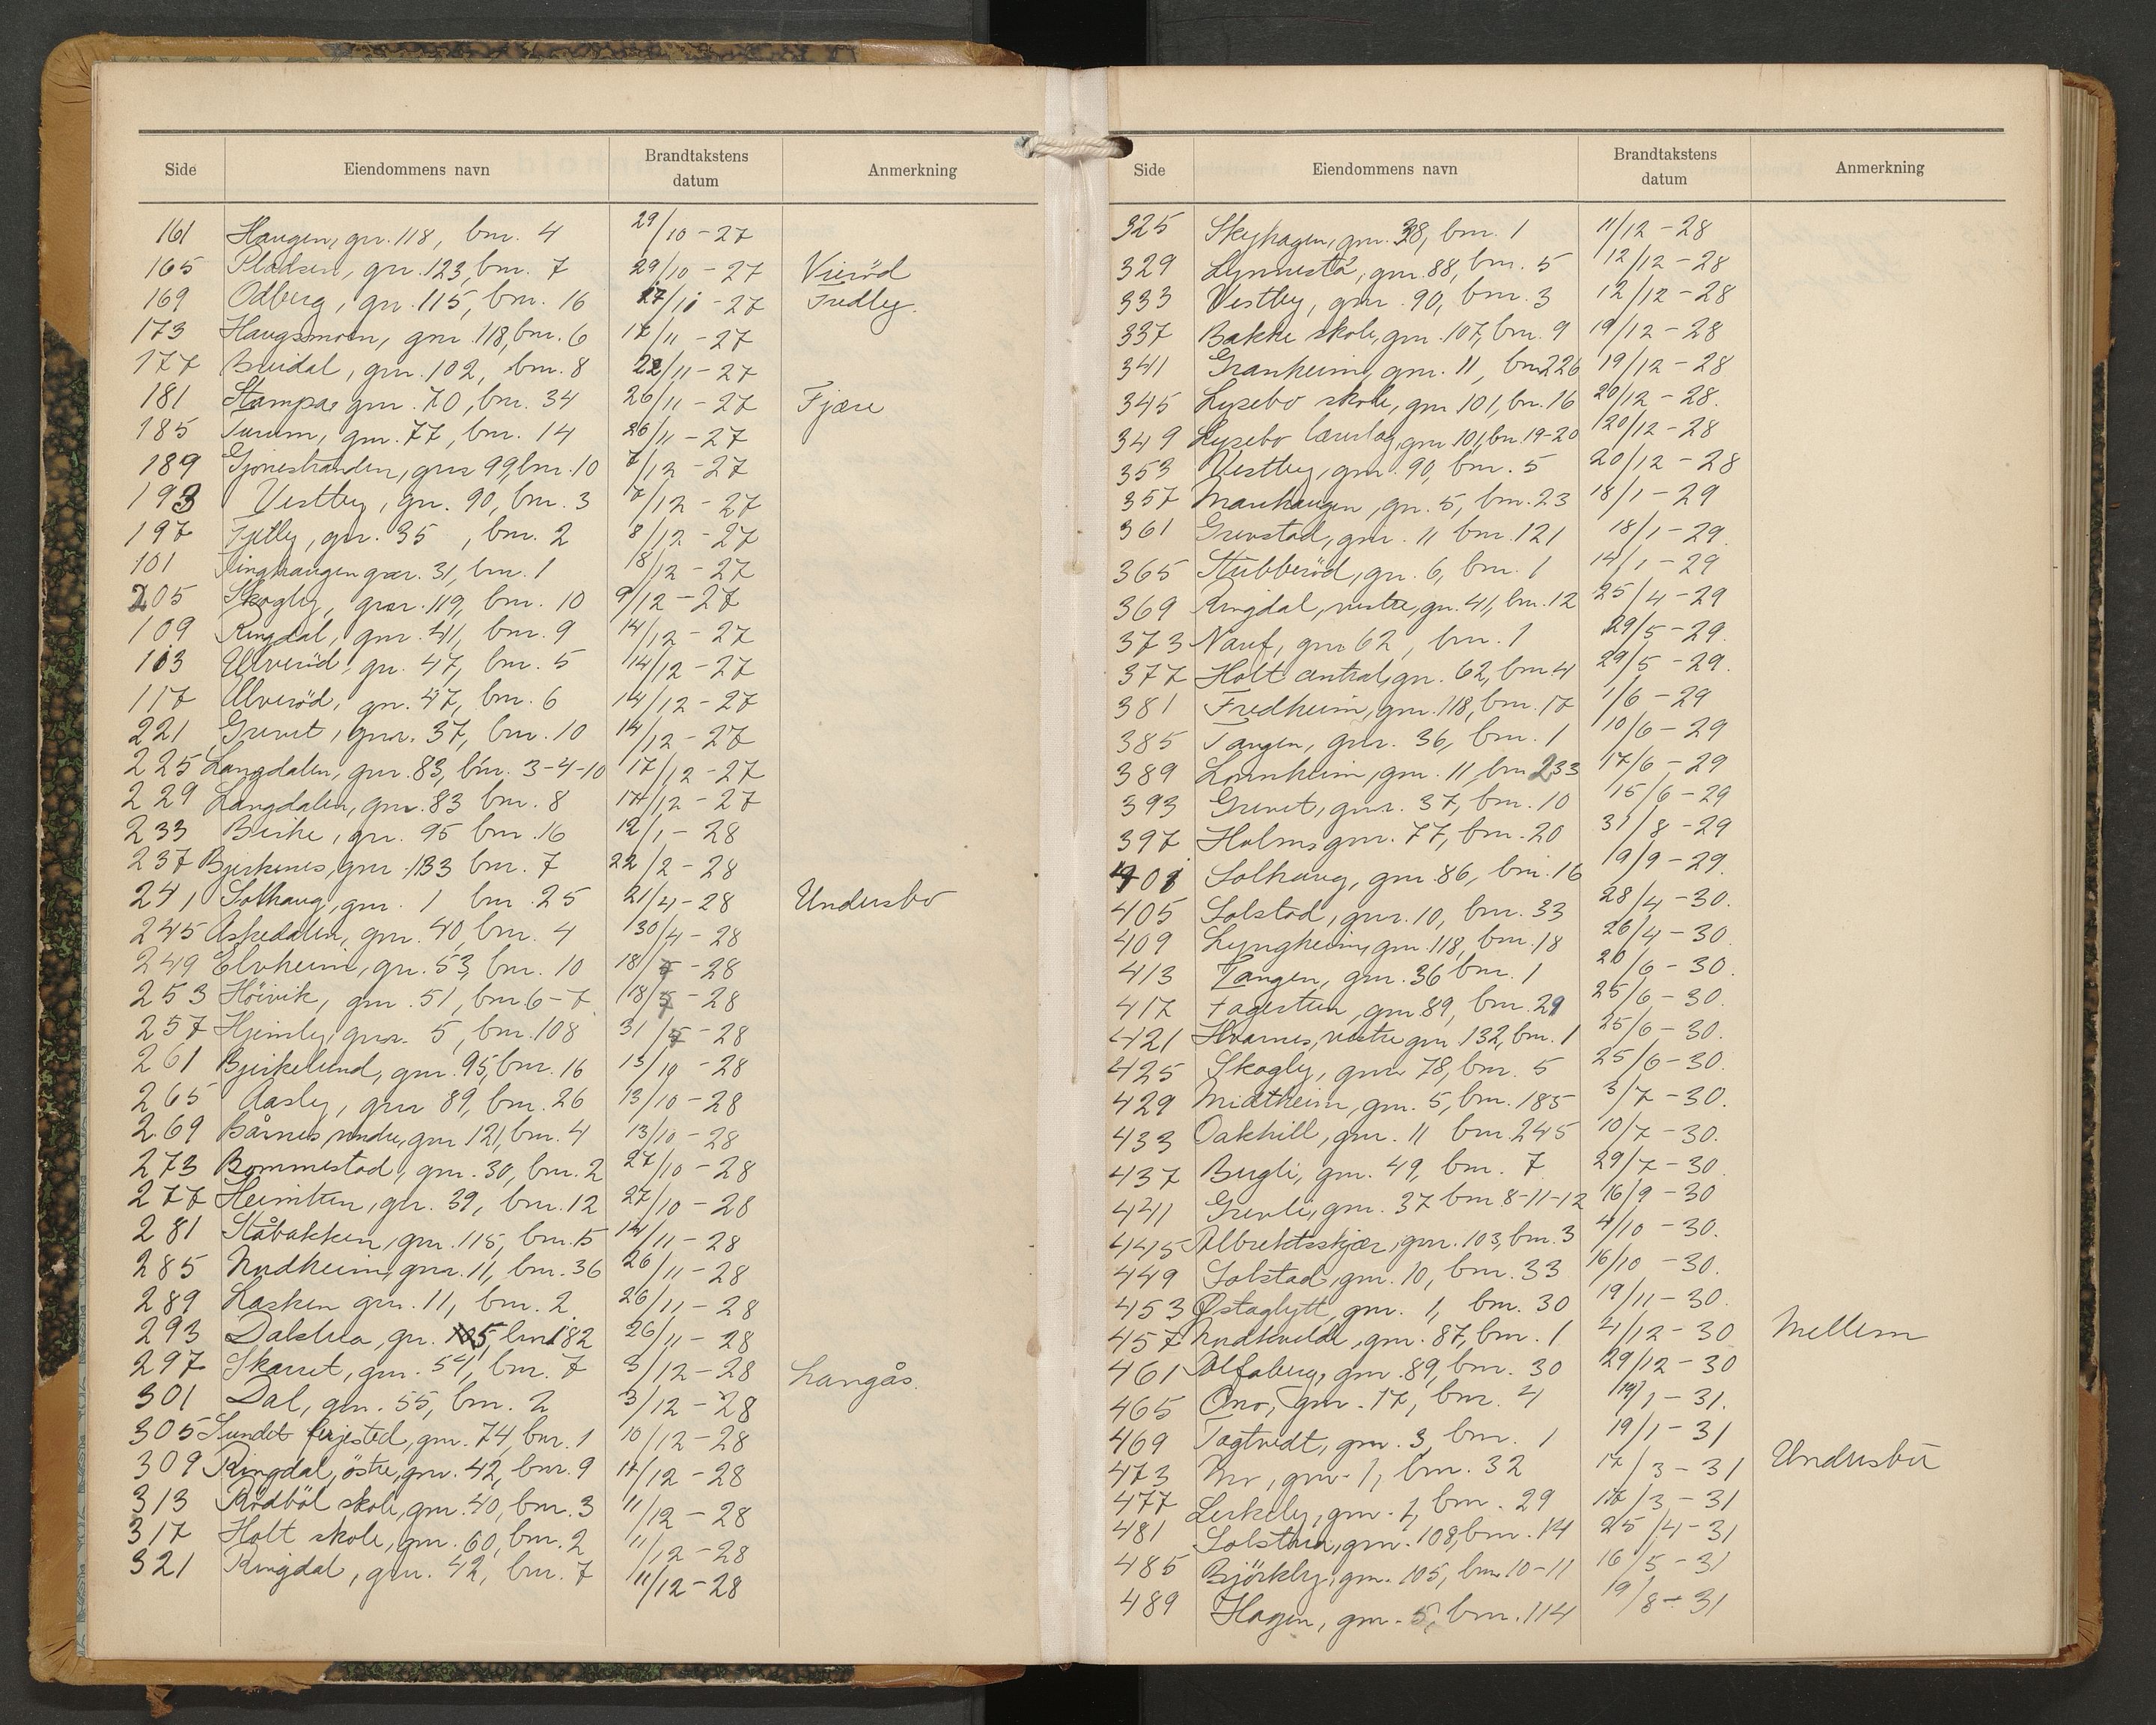 Side Eiendommens navn Brandtakstens datum Anmerkning
161 Haugen, gnr. 118, bnr. 4 29/10 - 27
165 Pladsen, gnr. 123, bnr. 7 29/10 - 27 Vieröd
169 Odberg, gnr. 115, bnr. 16 17/11 - 27 Fredly.
173 Haugsmoen, gnr. 118, bnr. 6 17/11 - 27
177 Breidal, gnr. 102, bnr. 8 22/11 - 27
181 Stampa gnr. 70, bnr. 34 26/11 - 27 Fjære
185 Turum, gnr. 77, bnr. 14 26/11 - 27
189 Gjonestranden, gnr 99, bnr. 10 7/12 - 27
193 Vestby, gnr. 90, bnr. 3 7/12 - 27
197 Fjelly, gnr. 35, bnr. 2 8/12 - 27
101 Tinghaugen gnr. 31, bnr. 1 8/12 - 27
205 Skogly, gnr. 119, bnr. 10 9/12 - 27
109 Ringdal, gnr. 41, bnr. 9 14/12 - 27
113 Ulveröd, gnr. 47, bnr. 5 14/12 - 27
117 Ulveröd, gnr. 47, bnr. 6 14/12 - 27
221 Grevet, gnr. 37, bnr. 10 14/12 - 27
225 Langdalen, gnr. 83, bnr. 3-4-10 17/12 - 27
229 Langdalen, gnr. 83 bnr. 8 17/12 - 27
233 Birke, gnr. 95 bnr. 16 12/1 - 28
237 Bjerkenes, gnr. 133 bnr. 7 22/2 - 28
241 Solhaug, gnr. 1 bnr. 25 21/4 - 28 Undersbo
245 Askedalen, gnr. 40, bnr. 4 30/4 - 28
249 Elvheim, gnr. 53, bnr. 10 18/5 - 28
253 Höivik, gnr. 51, bnr 6-7 18/5 - 28
257 Hjemly, gnr. 5, bnr. 108 31/5 - 28
261 Bjerkelund, gnr. 95, bnr. 16 13/10 - 28
265 Aasly, gnr 89, bnr. 26 13/10 - 28
269 Bårnes, nndre, gnr 121, bnr. 4 13/10 - 28
273 Bommestad, gnr. 30, bnr. 2 27/10 - 28
277 Heimtun, gnr. 39, bnr. 12 27/10 - 28
281 Ståbakken, gnr. 115, bnr. 15 14/11 - 28
285 Nordheim, gnr. 11, bnr. 36 26/11 - 28
289 Lasken gnr. 11, bnr. 2 26/11 - 28
293 Dalstua, gnr. 5, bnr 182 26/11 - 28
297 Skarret, gnr. 54, bnr. 7 3/12 - 28 Langås.
301 Dal, gnr. 55, bnr. 2 3/12 - 28
305 Sundet ferjested, gnr. 74, bnr. 1 10/12 - 28
309 Ringdal, östre, gnr. 42, bnr. 9 11/12 - 28
313 Rödböl skole, gnr. 40, bnr. 3 11/12 - 28
317 Holt skole, gnr. 60, bnr. 2 11/12 - 28
321 Ringdal, gnr. 42, bnr. 7 11/12 - 28
Side Eiendommens navn Brandtakstens datum Anmerkning
325 Skyhagen, gnr. 38, bnr. 1 11/12 - 28
329 Lynnestå, gnr. 88, bnr. 5 12/12 - 28
333 Vestby, gnr. 90, bnr. 3 12/12 - 28
337 Bakke skole, gnr. 107, bnr. 9 19/12 - 28
341 Granheim, gnr. 11, bnr 226 19/12 - 28
345 Lysebo skole, gnr 101, bnr. 16 20/12 - 28.
349 Lysebo lærerbog, gnr 101, bnr. 19-20 20/12 - 28
353 Vestby, gnr. 90, bnr. 5 20/12 - 28
357 Marihaugen, gnr. 5, bnr. 23 18/1 - 29
361 Grevstad, gnr. 11 bnr. 121 18/1 - 29.
365 Stubberöd, gnr. 6, bnr. 1 14/1 - 29
369 Ringdal, vestre, gnr. 41, bnr. 12 25/4 - 29
373 Nauf, gnr 62, bnr. 1 29/5 - 29.
377 Holt central, gnr. 62, bnr. 4 29/5 - 29.
381 Fredheim, gnr. 118, bnr. 17 1/6 - 29
385 Tangen, gnr. 36, bnr. 1 10/6 - 29
389 Lonnheim, gnr. 11 bnr 233 17/6 - 29
393 Grevet, gnr. 37, bnr. 10 15/6 - 29
397 Holms gnr. 77, bnr. 20 31/8 - 29
401 Solhaug, gnr 86, bnr. 16 19/9 - 29.
405 Solstad, gnr. 10, bnr. 33 28/4 - 30.
409 Lyngheim, gnr. 118, bnr. 18 26/4 - 30.
413 Tangen, gnr. 36 bnr. 1 20/6 - 30.
417 Fagertun, gnr. 89, bnr. 29 25/6 - 30.
421 Hvarnes, vestre gnr 132, bnr. 1 25/6 - 30.
425 Skogly, gnr 78, bnr. 5 25/6 - 30.
429 Midtheim, gnr. 5, bnr. 185 3/7 - 30.
433 Oakhill, gnr. 11 bnr. 245 10/7 - 30.
437 Bugli, gnr. 49, bnr. 7 29/7 - 30.
441 Grevli, gnr. 37 bnr 8-11-12 16/9 - 30
445 Albrektsskjær, gnr. 103, bnr. 3 4/10 - 30.
449 Solstad, gnr. 10, bnr. 33 16/10 - 30.
453 Østaglytt, gnr. 1, bnr. 30 19/11 - 30.
457 Nordkvelde, gnr. 87, bnr. 1 4/12 - 30 Mellem
461 Alfaberg, gnr. 89, bnr. 30 29/12 - 30
465 Ono, gnr. 17, bnr. 4 19/1 - 31.
469 Tagtvedt, gnr. 3, bnr. 1 19/1 - 31
473 Mo, gnr. 1, bnr. 32 17/3 - 31 Undersbo
477 Leikeby, gnr. 1, bnr. 29 18/3 - 31
481 Solstua, gnr. 108, bnr. 14 25/4 - 31
485 Björkly, gnr. 105, bnr. 10-11 16/5 - 31
489 Hagen, gnr. 5, bnr. 114 19/8 - 31